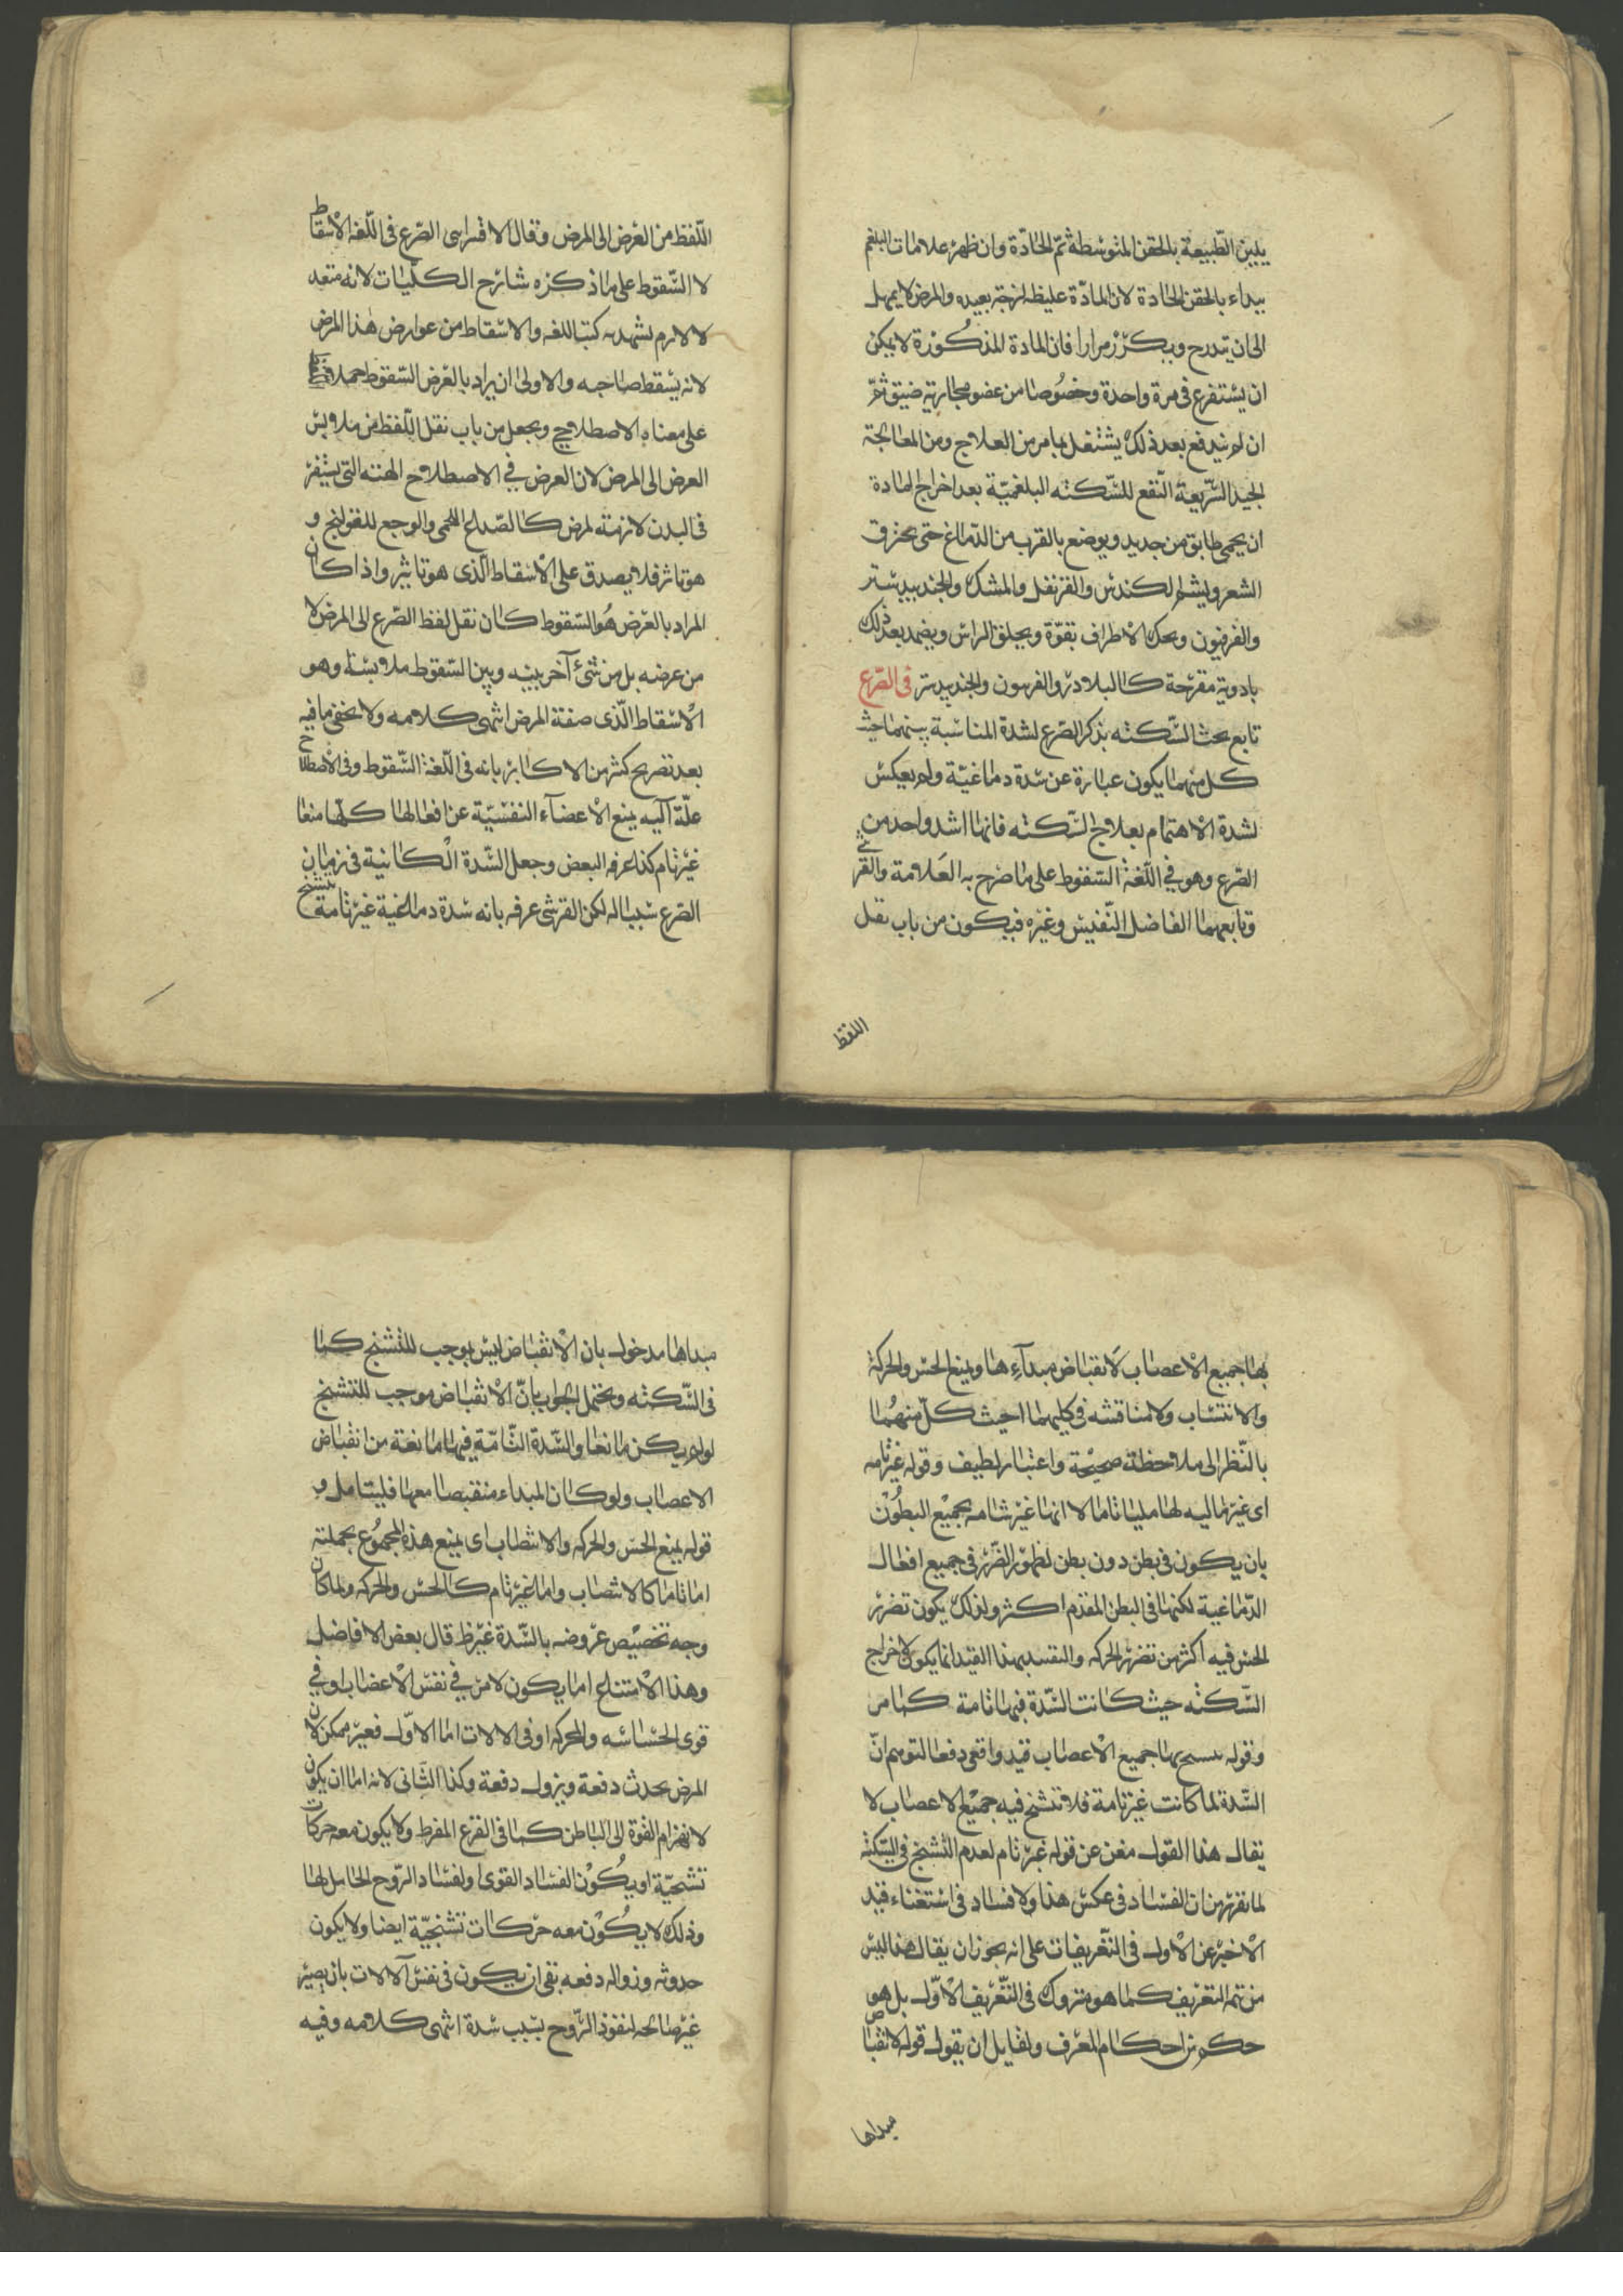 يلين الطّبيعة بالحقن المتوسّطة ثمّ الحادّة وان ظهر علامات البلغم
يبداء بالحقن الحادة لان المادّة غليظه لزجة بعيده والمرض لا يمهل
الى ان يتدرج ويكرّر مرارا فان المادة المذكُورة لا يمكن
ان يستفرغ فى مرة واحدة وخصُوصا من عضو مجاريه ضيق ثمّ
ان لم يندفع بعد ذلك يشتغل بما مر من العلاج ومن المعالجة
الجيد السّريعة النّفع للسّكته البلغميّة بعد اخراج المادة
ان يحمى طابق من جديد ويوضع بالقرب من الدّماغ حتى يحترق
الشعر ويشم الكندس والقرنفل والمشك والجندبيدستر
والفرفيون ويحك الاطراف بقوّة ويحلق الراس ويضمد بعد ذلك
بادوية مقرّحة كالبلادر والفربيون والجندبيدستر فى الصّرع
تابع بحث السّكته بذكر الصّرع لشدة المناسبة بينهما حيث
كل منهما يكون عبارة عن سّدة دماغيّة ولم يعكس
لشدة الاهتمام بعلاج السّكته فانها اشد واحد من
الصّرع وهو في اللّغة السّقوط على ما صرح به العَلامة والقرشى
وتابعهما الفاضل النّفيس وغيره فيكون من باب نقل
اللفظ
اللّفظ من العرض الى المرض وقال الاقسرايى الصّرع فى اللّغة الاسقاط
لا السّقوط على ما ذكره شارح الكلّيات لانه متعد
لا لازم يشهد به كتب اللغه والاسقاط من عوارض هذا المرض
لانه يسقط صاحبه والاولى ان يراد بالعرض السّقوط حملا
على معناه الاصطلاحي ويجعل من باب نقل اللّفظ من ملابس
العرض الى المرض لان العرض في الاصطلاح الهئته التى يستقر
فى البدن لازمته لمرض كالصّداع للحمى والوجع للقولنج و
هو تاثر فلا يصدق على الاسقاط الّذى هو تاثير واذا كان
المراد بالعرض هُو السّقوط كان نقل لفظ الصّرع الى المرض لا
من عرضه بل من شئ آخر بينه وبين السّقوط ملابسة وهو
الاسقاط الّذى صفة المرض انتهى كلامه ولا يخفى ما فيه
بعد تصريح كثير من الاكابر بانه فى اللّغة السّقوط وفى الاصطلاح
علّة آليه يمنع الاعضاء النفسيّة عن افعالها كلّها منعا
غير تام كذا عرفه البعض وجعل السّدة الكائنة فى زمان
الصّرع سببا له لكن القرشى عرفه بانه سّدة دماغية غير تامة يتشنج
بها جميع الاعصاب لانقباض مبدآءِ ها ويمنع الحس والحركة
والانتساب ولا مناقشه في كليهما احيث كلّ منهُما
بالنّظر الى ملاحظة صحيحة واعتبار لطيف وقوله غير تامه
اى غير ماليه لها مليا تاما لا انها غير شامه بجميع البطُون
بان يكون فى بطن دون بطن لظهور الضّرر فى جميع افعال
الدّماغية لكنها فى البطن المقدم اكثر ولذلك يكون تضرر
الحس فيه اكثر من تضرر الحركه والتقييد بهذا القيد انما يكون لاخراج
السّكته حيث كانت السّدة فيها تامة كما مر
وقوله يتسنج بها جميع الاعصاب قيد واقعى دفعا لتوهم انّ
السّدة لما كانت غير تامة فلا تتشنج فيه جميع الاعصاب لا
يقال هذا القول مغن عن قوله غير تام لعدم التّشنج في السّكته
لما تقرر من ان الفساد فى عكس هذا ولا فساد فى استغناء قيد
الاخير عن الاول فى التّعريفات على انه يجوز ان يقال هذا ليس
من تتمه التعريف كما هو متروك فى التّعريف الاوّل بل هو
حكم من احكام المعرف ولقايل ان يقول قوله لانقباض
مبداها
مبداها مدخول بان الانقباض ليس بوجب للتّشنج كما
فى السّكته ويحتمل الجواب بانّ الانقباض موجب للتشنج
لو لم يكن مانعا والسّدة التّامّة فيها مانعة من انقباض
الاعصاب ولو كان المبداء منقبضا معها فليتامل و
قوله يمنع الحس والحركه والانتصاب اى يمنع هذه المجمُوع بجملته
اما تاما كالانتصاب واما غير تام كالحس والحركه ولما كان
وجه تخصيص عروضه بالسّدة غير ظ قال بعض الافاضل
وهذا الامتناع اما يكون لامر في نفس الاعضاب او في
قوى الحسّاسه والمحركه او فى الالات اما الاوّل فغير ممكن لان
المرض يحدث دفعة ويزول دفعة وكذا الثانى لانه اما ان يكون
لانهزام القوة الى الباطن كما فى الفزع المفرط ولا يكون معه حركات
تشنجيّة او يكُون الفساد القوى او لفساد الرّوح الحامل لها
وذلك لا يكُون معه حركات تشنجيّة ايضا ولا يكون
حدوثه وزواله دفعه بقى ان يكون فى نفس الآلات بان يصير
غير صالحه لنفوذ الرّوح بسبب سّدة انتهى كلامه وفيه